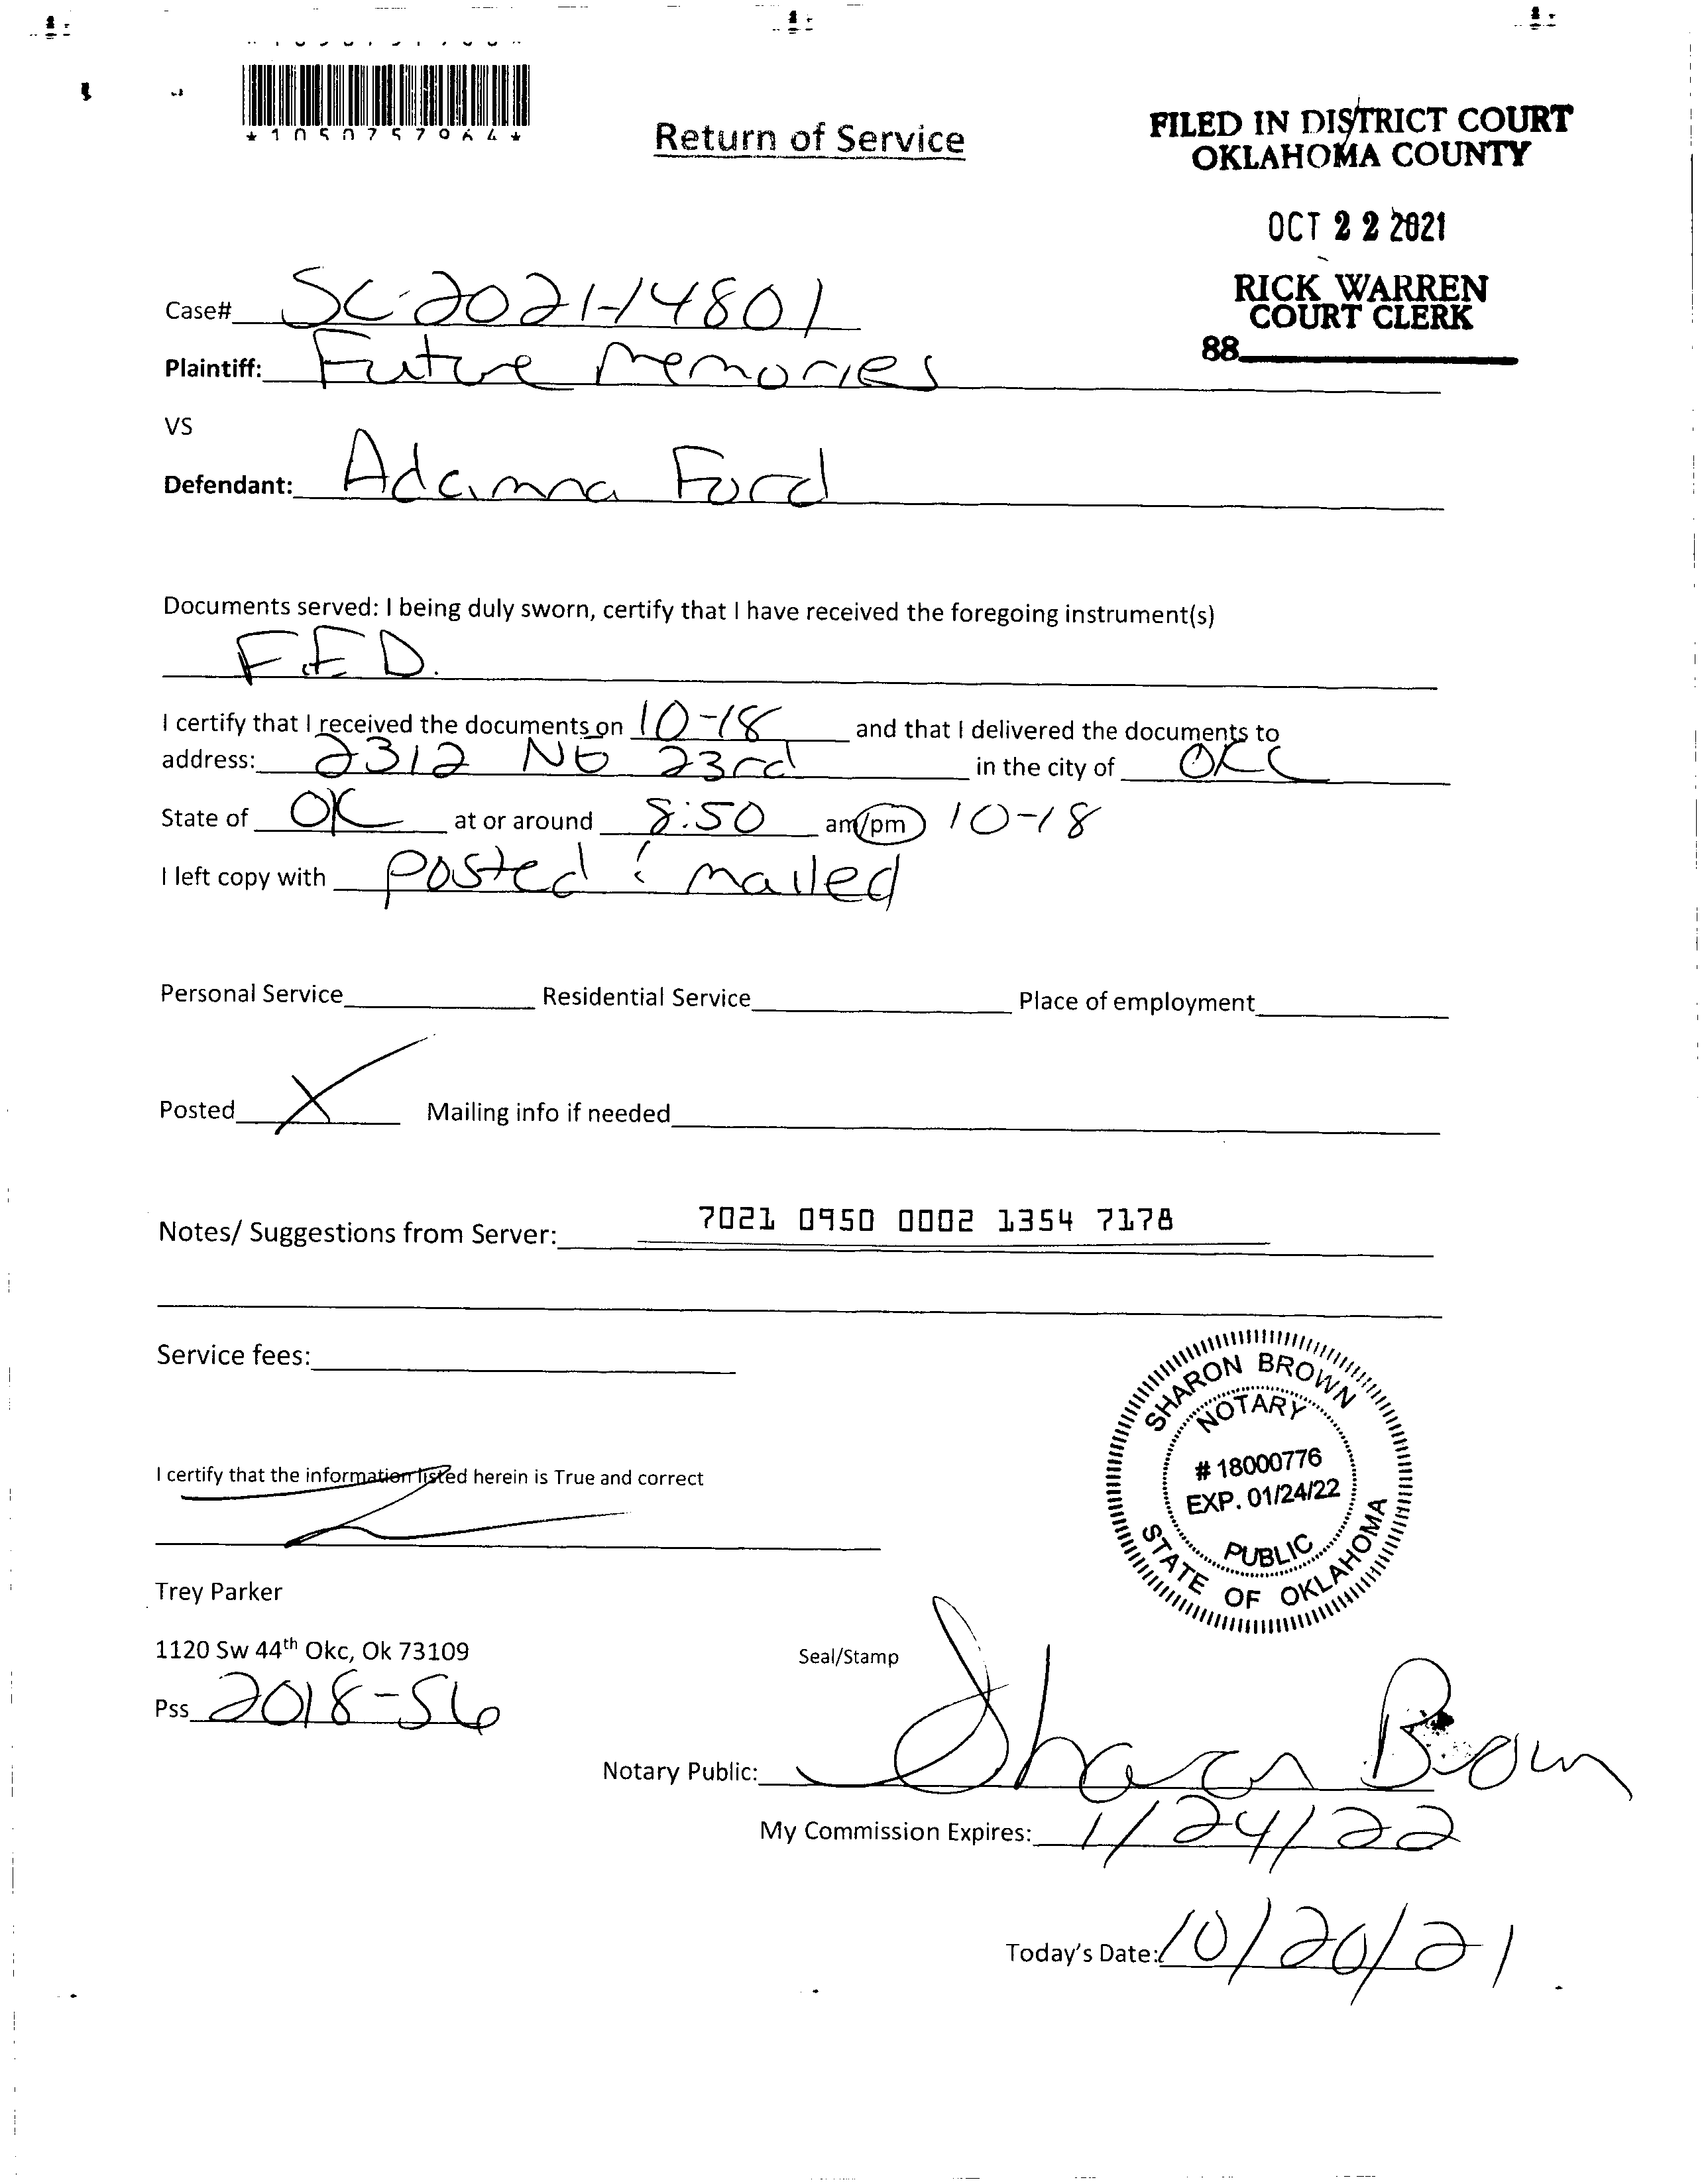 *1050757964*
Return of Service
FILED IN DISTRICT COURT
OKLAHOMA COUNTY
OCT 22 2021
RICK WARREN
COURT CLERK
88
Case# SC-2021-14801
Plaintiff: Future Memories
VS
Defendant: Adamna Ford
Documents served: I being duly sworn, certify that I have received the foregoing instrument(s)
F.E.D.
I certify that I received the documents on 10-18 and that I delivered the documents to
address: 2312 NE 23rd in the city of OKC
State of OK at or around 8:50 am/pm 10-18
I left copy with posted & mailed
Personal Service Residential Service Place of employment
Posted X Mailing info if needed
Notes/ Suggestions from Server: 7021 0950 0002 1354 7178
Service fees:
SHARON BROWN
NOTARY
# 18000776
EXP. 01/24/22
PUBLIC
STATE OF OKLAHOMA
I certify that the information listed herein is True and correct
Trey Parker
1120 Sw 44th Okc, Ok 73109
Seal/Stamp
Pss 2018-56
Notary Public: Sharon Brown
My Commission Expires: 1/24/22
Today's Date: 10/20/21